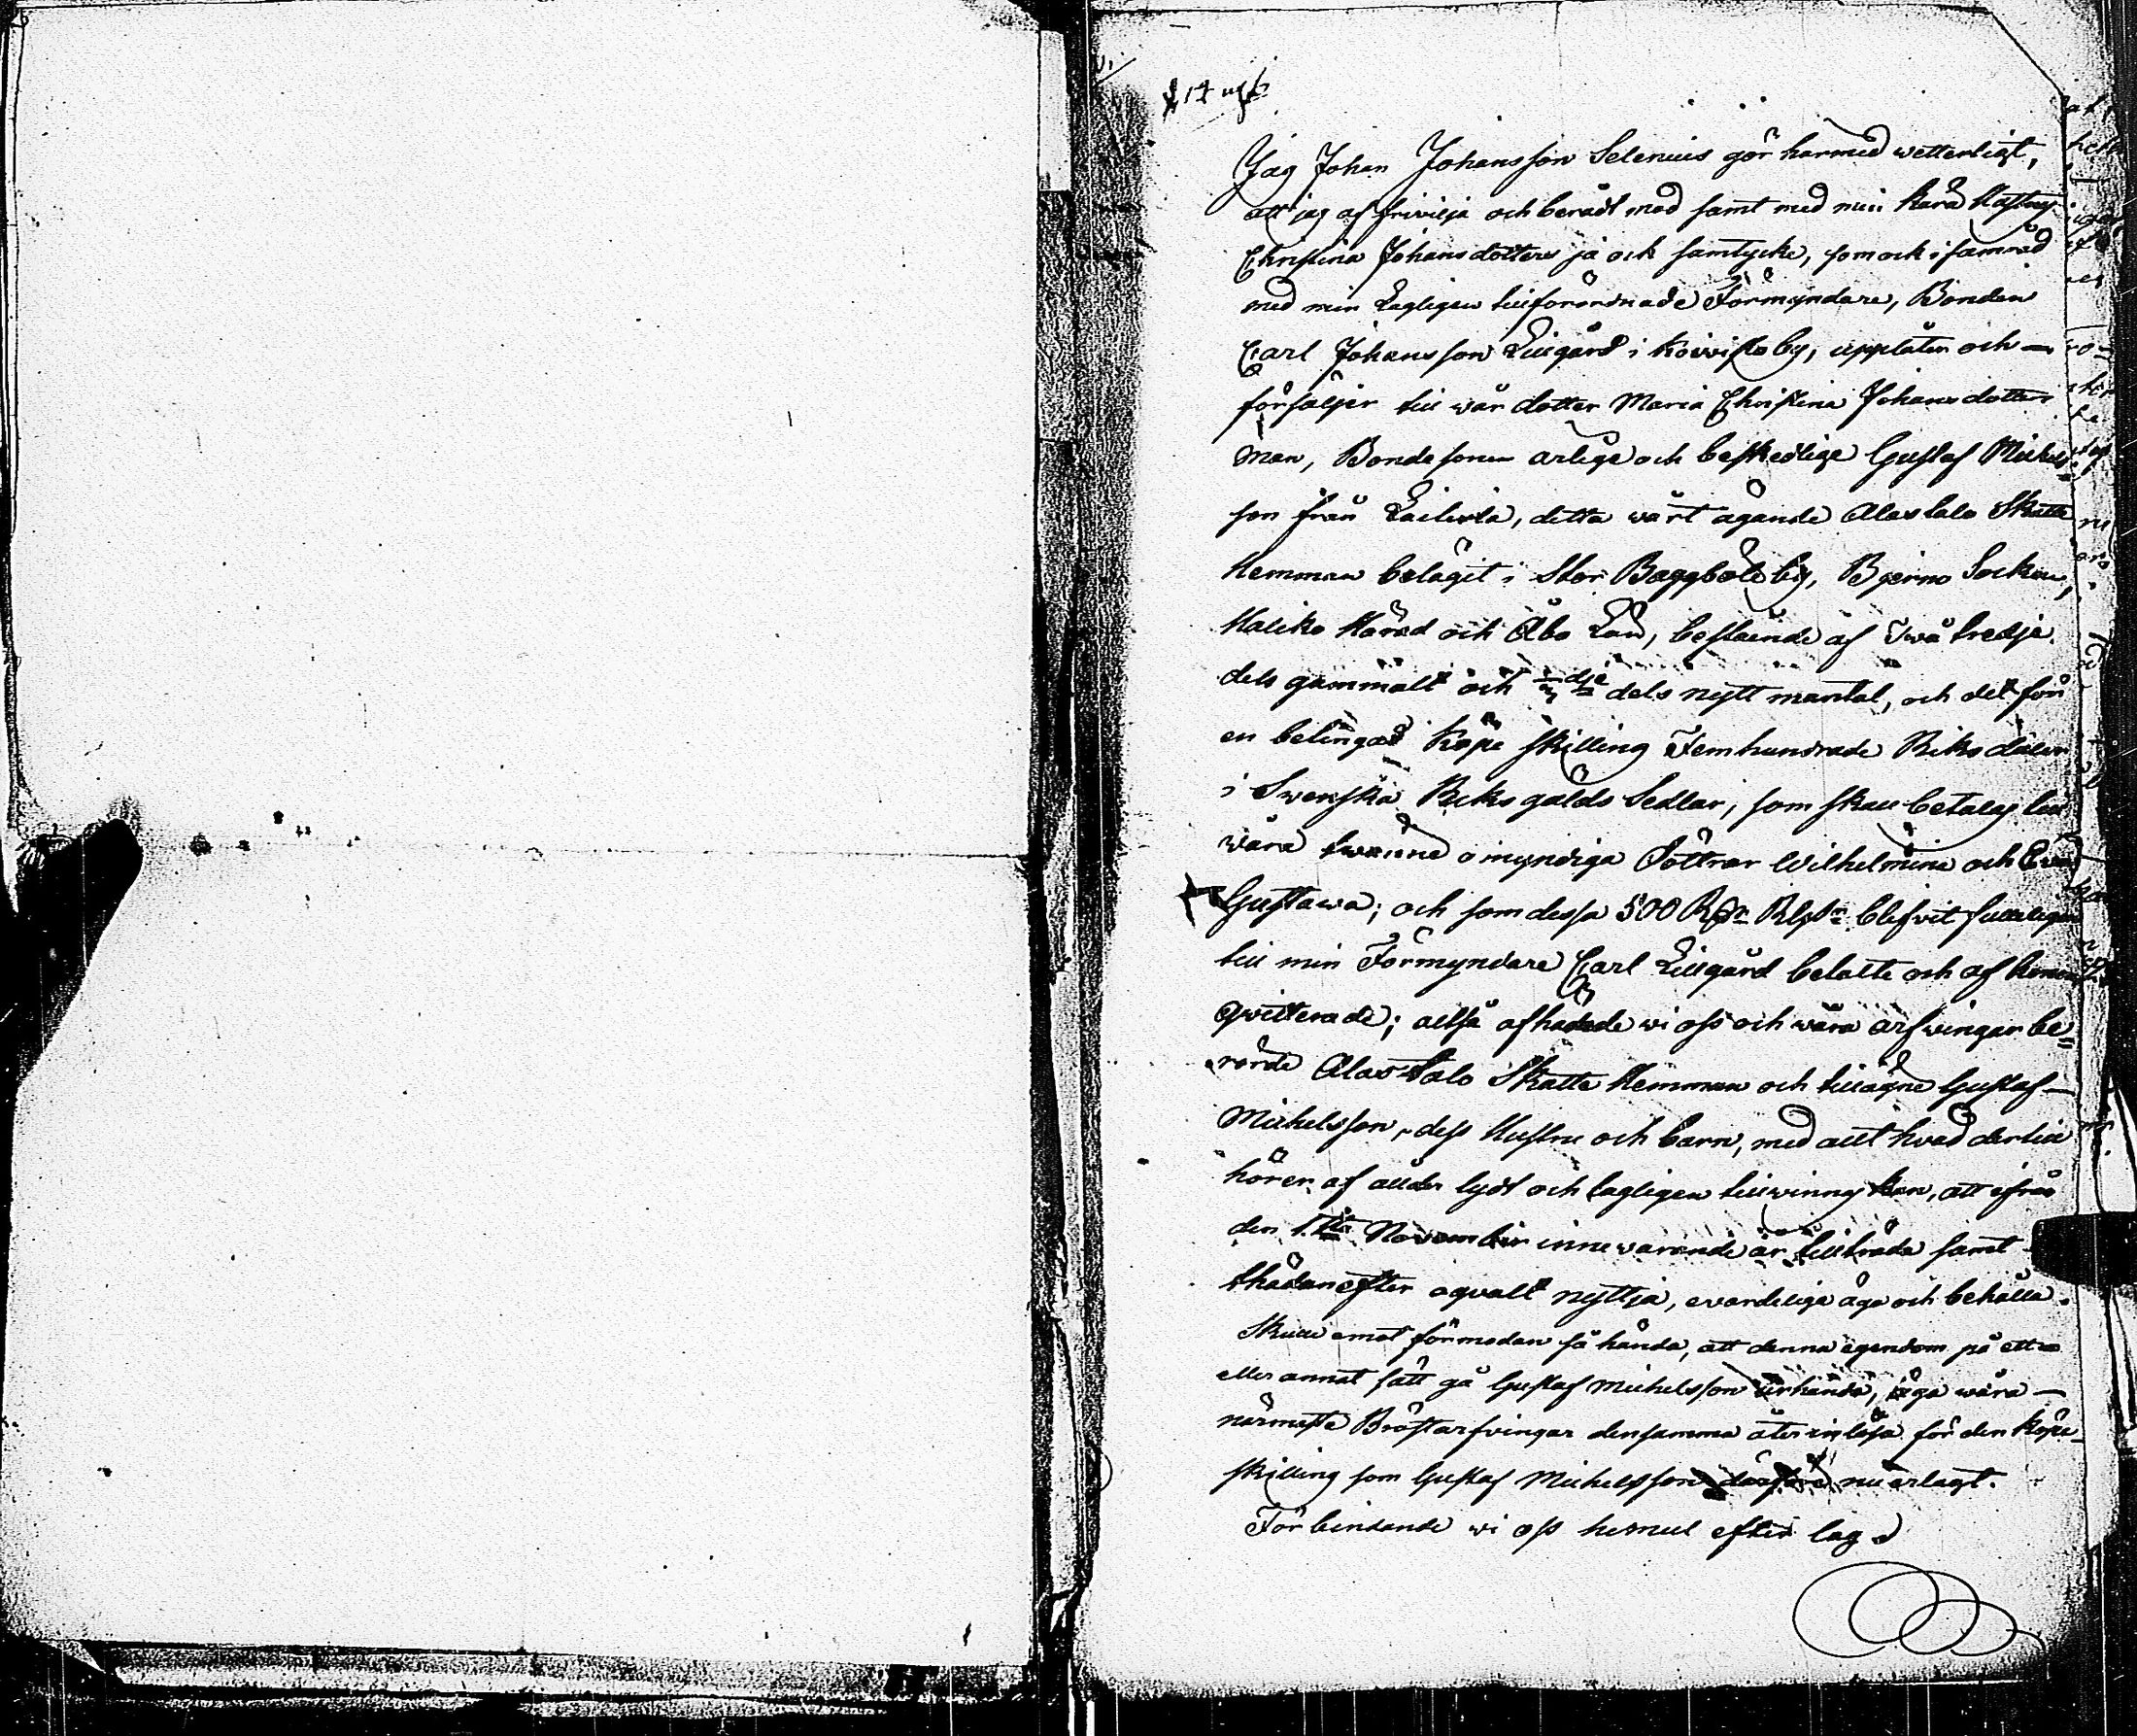 Jag Johan Johansson Selenius gör härmed wetterligt,
att jag af friwilja och berådt mod samt med min kära Hustrus
Christina Johansdotters ja och samtycke, som ock i samråd
med min Lagligen tillförordnade Förmyndare, Bonden
Carl Johansson Lillgård i Koivisto by, upplåter och
försäljer till wår dotter Maria Christina Johansdotters
man, Bondesonen ärlige och beskedlige Gustaf Michels-
son från, detta wårt ägande Alastalo Skatte
Hemman belägit i Stor Baggböle by, Bjerno Socken,
Haliko Härad och Åbo Län, bestående af Twå tredje
dels gammalt och dje dels nytt mantal, och det för
en betingad Köpe skilling Femhundrade Riksdaler
i Swenska Riksgälds Sedlar, som skall betalas till
wåra twänne omyndiga Döttrar Wilhelmina och Ewa
Gustawa; och som dessa 500 blifvit fulleligen
till min Förmyndare Carl Lillgård betalte och af honom
qwitterade; alltså afhände wi oss och wåra arfwingar be=
rörde Alastalo Skatte Hemman och tillägne Gustaf
Michelsson, dess Hustru och barn, med allt hwad dertill
hörer, af ålder lydt och lagligen tillwinnas kan, att ifrån
den 1sta November innewarande år tillträda samt
thädanefter oqvalt nyttja, evärdeligt äga och behålla.
Skulle emot förmodan så hända, att denna egendom på ett
eller annat sätt gå Gustaf Michelsson urhända, äga wåra
närmaste Bröstarfvingar densamma återinlösa för den köpe-
skilling som Gustaf Michelsson derföre nu erlagt.
Förbindande wi oss hemul efter lag.